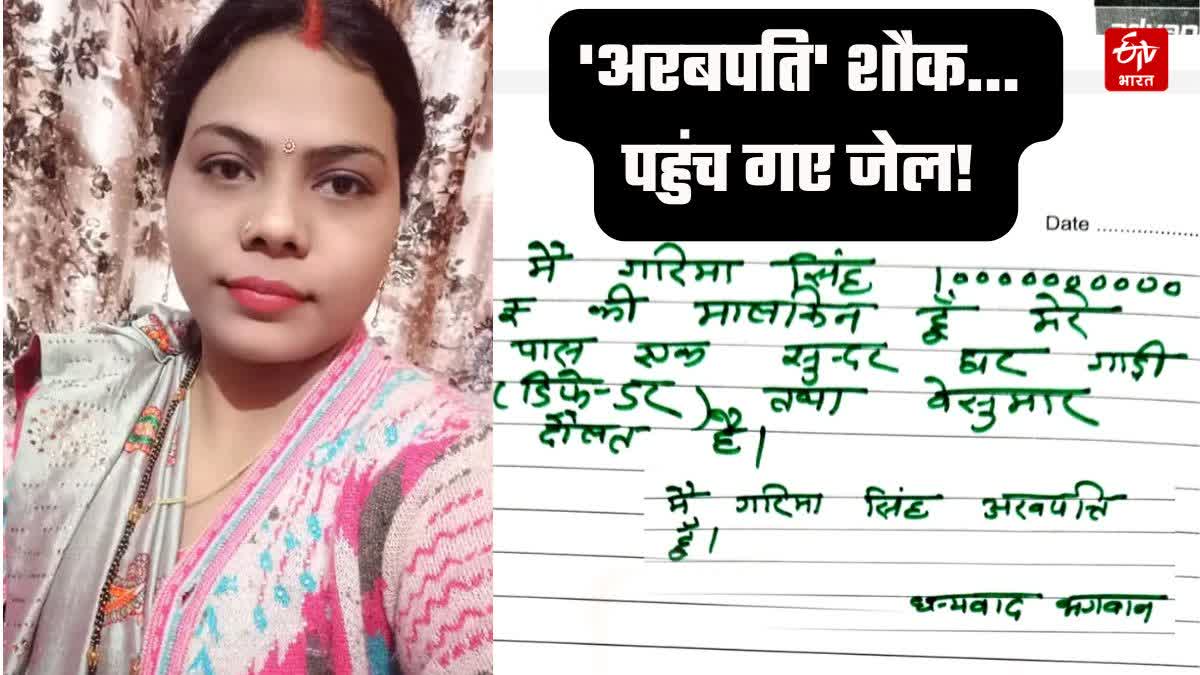 'अरबपति' शौक...
पहुंच गए जेल!
ETV
भारत
Date ..................
मैं गरिमा सिंह
रू की मालकिन हूँ मेरे
पास एक सुन्दर घर गाड़ी
(डिफेन्डर) तथा वेसुमार
दौलत है।
मैं गरिमा सिंह अरबपति
हूँ।
धन्यवाद भगवान